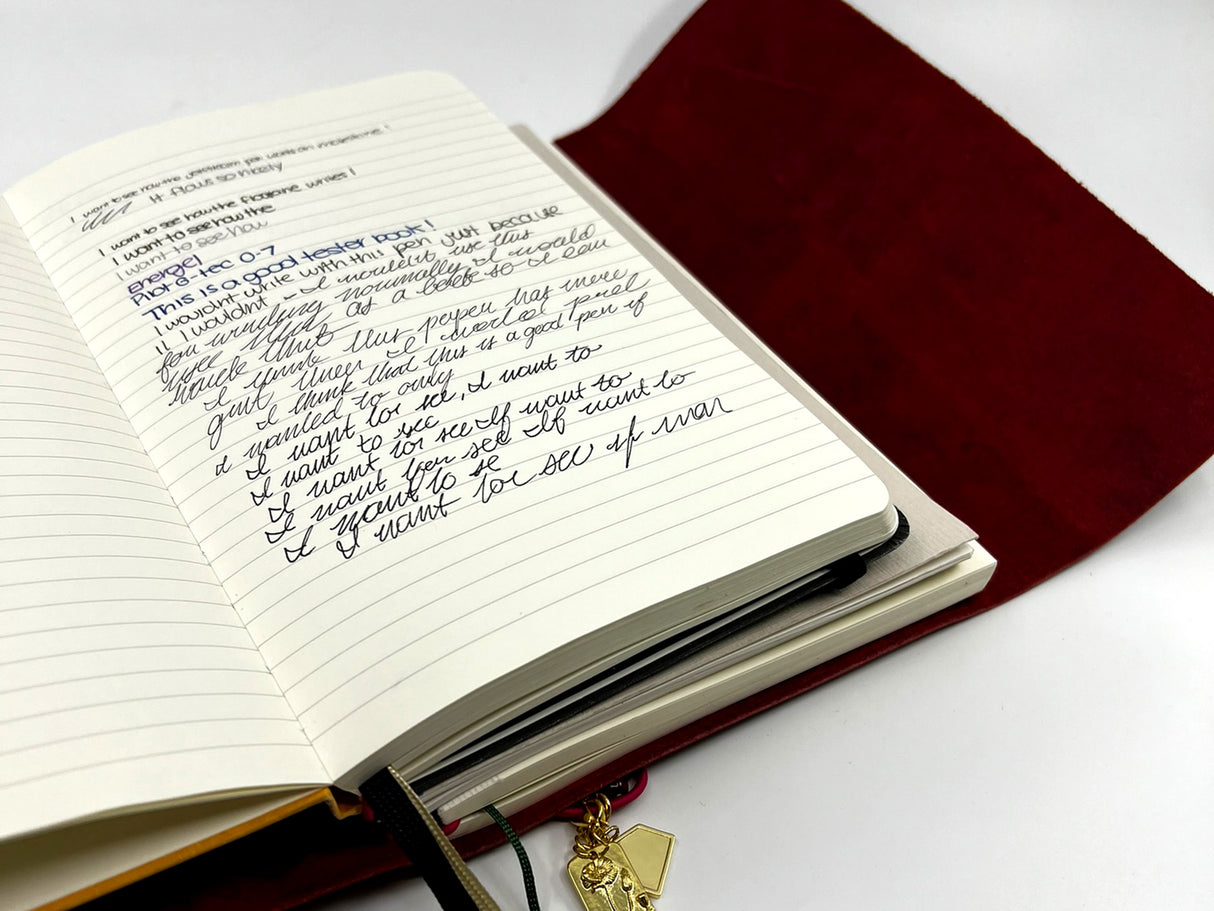 I want to see how the jetstream pen works on moleskine!
It flows so nicely
I want to see how the fixoline writes!
I want to see how the
I want to see how
Energel
Pilot G-tec 0-7
This is a good tester book!
I wouldnt write with this pen just because
it I wouldnt - I wouldnt use this
for working normally I would
use that as a bebe so I can
I think this paper has more
I think that this is a good pen if
I wanted to only
I want for se, I want to
I want to see
I want for see If want to
I want for see If want to
I want to se
I want for see if wan